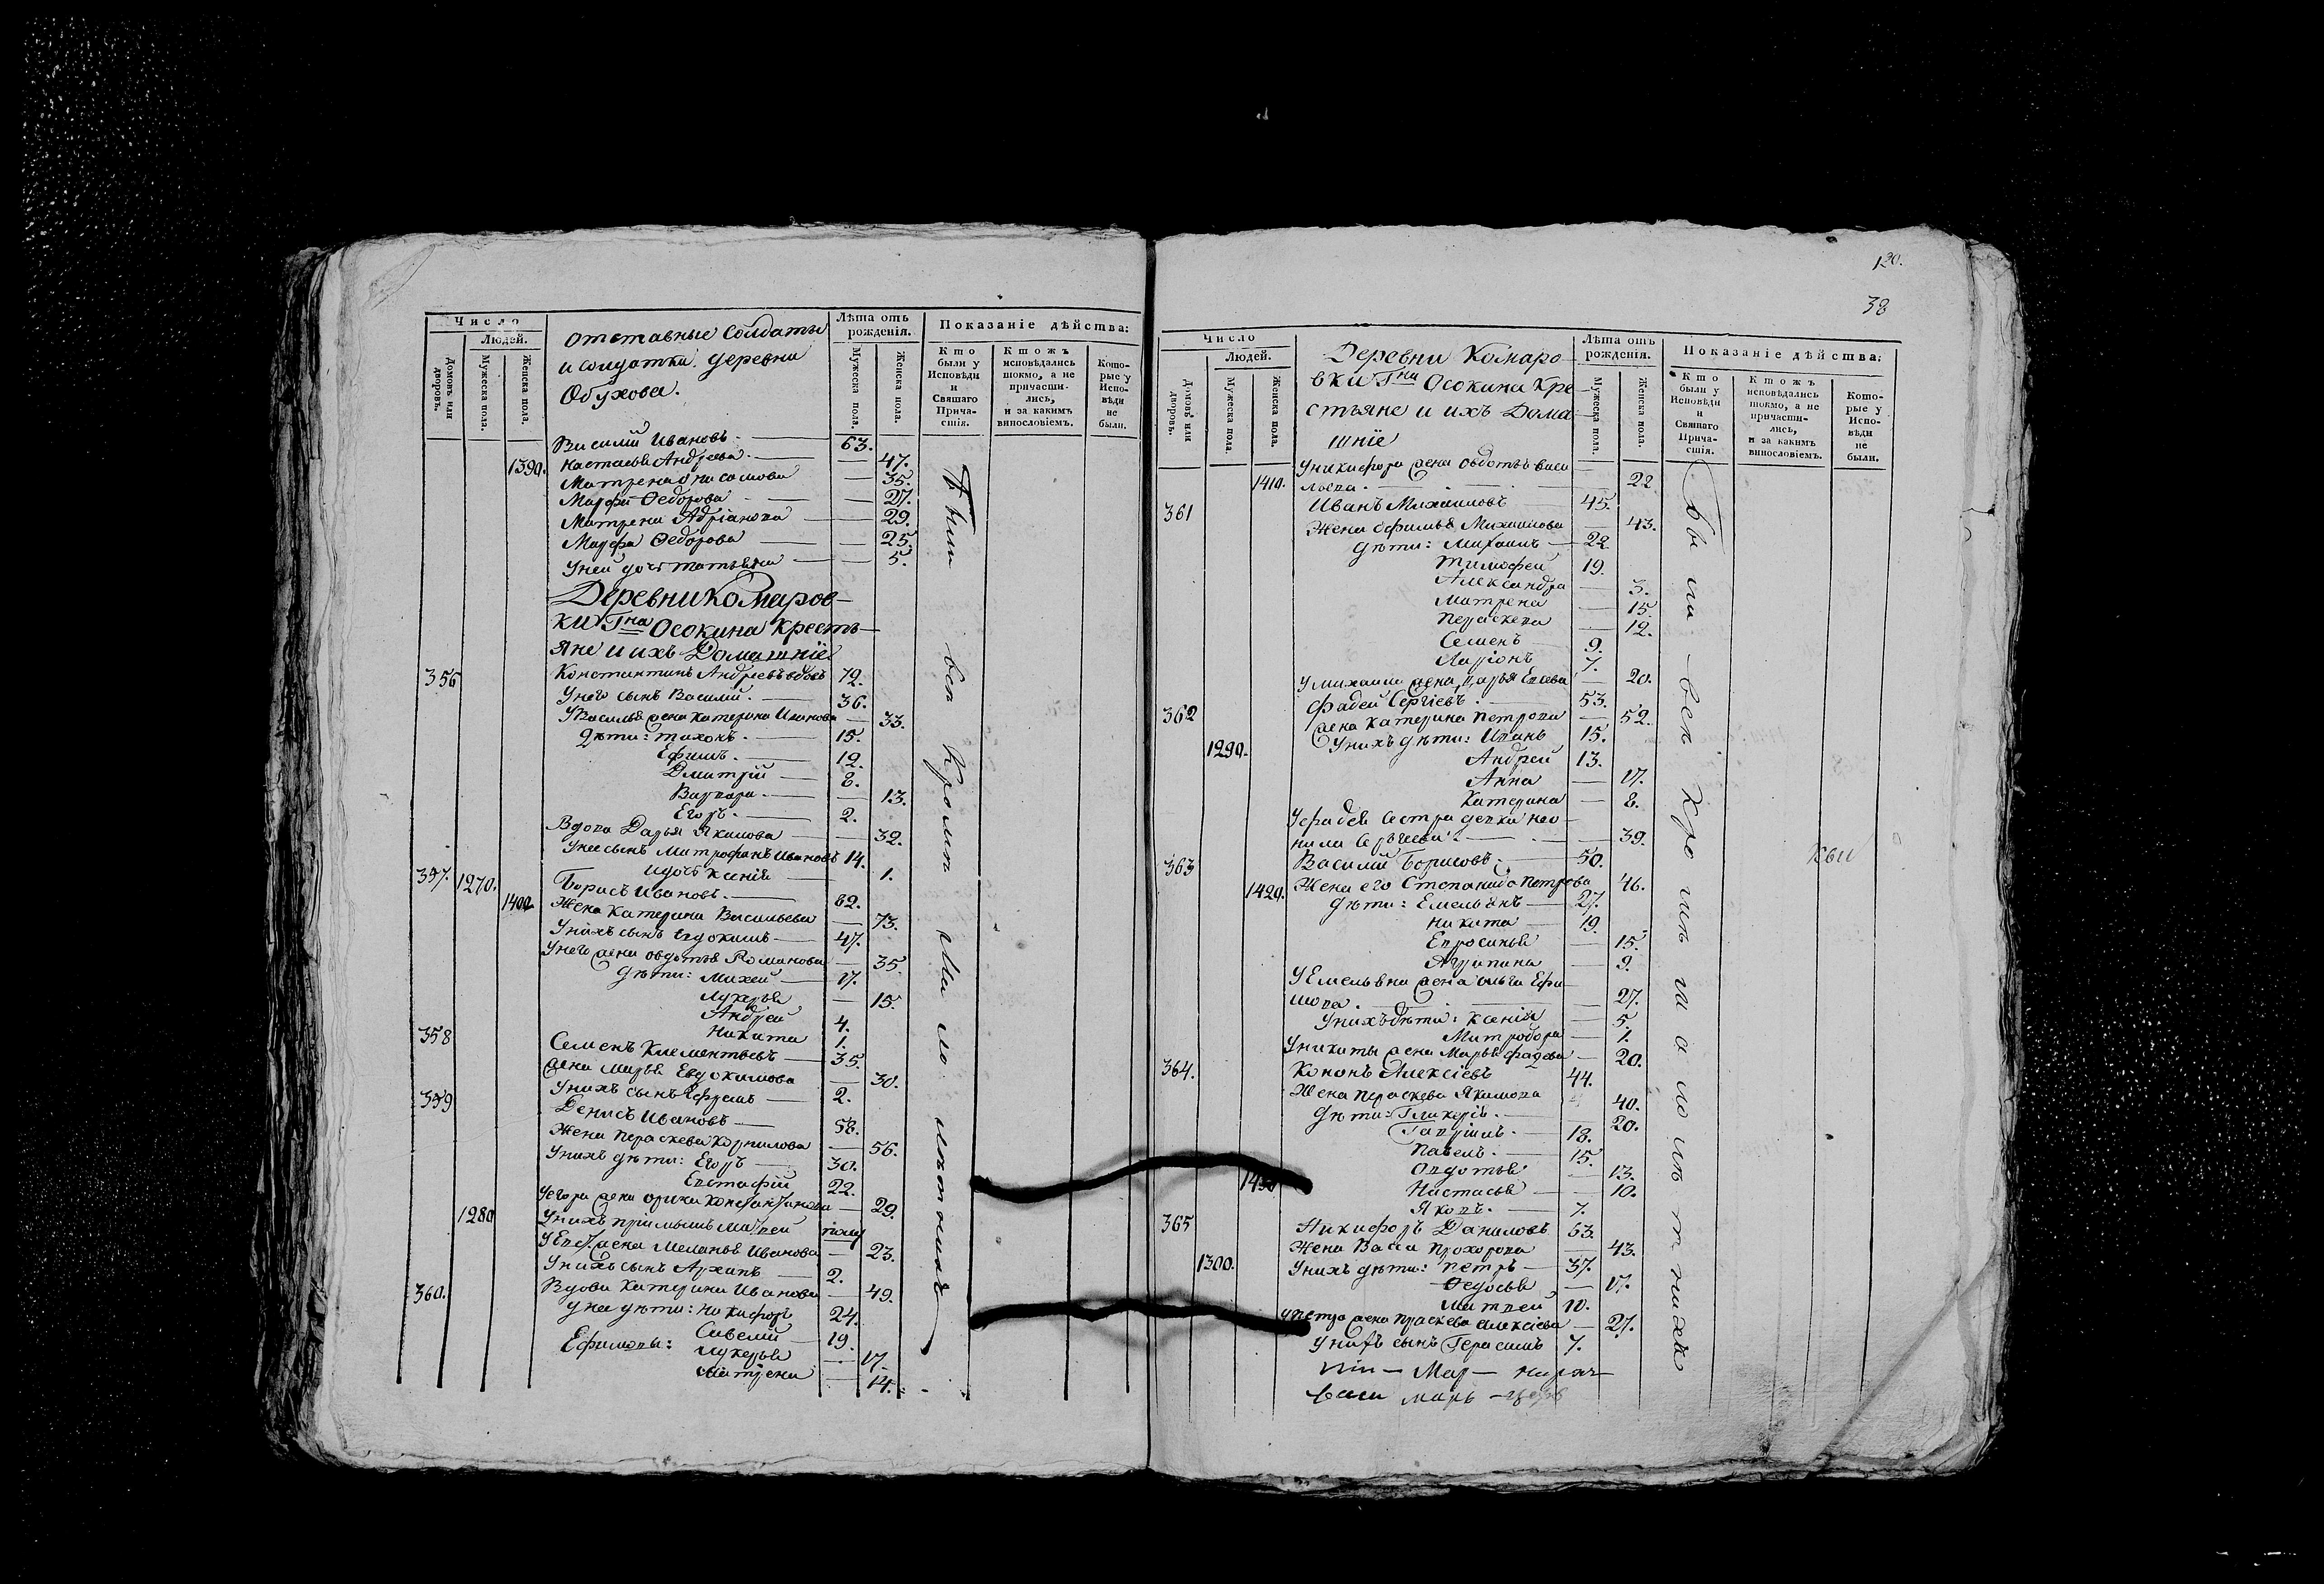 Число
Людей.
Домовъ или дворовъ.
Мужеска пола.
Женска пола.
отставные Солдаты
и солдатки деревни
Обухова.
Лѣта отъ рожденія.
Мужеска пола.
Женска пола.
Показаніе дѣйства:
Кто были у Исповѣди и Святаго Причастія.
Ктожъ исповѣдались токмо, а не причастились, и за какимъ винословіемъ.
Которые у Исповѣди не были.
Василій Ивановъ. 63.
1390. Настасья Андреева. 47.
Матрена 35.
Марфа Федорова 27.
Матрена Адріанова 29.
Марфа Федорова 25.
Уней дочь Татьяна 5.
Деревни Комаров-
ки Гна Осокина Кресть-
яне и ихъ Домашніе
356 Константинъ Андреевъ вдовъ 72.
Унего сынъ Василій. 36.
УВасилья жена Катерина Иванова 33.
Дѣти: Тихонъ. 15.
Ефимъ. 12.
Дмитрій 8.
Варвара. 13.
Егоръ. 2.
Вдова Дарья Якимова 32.
Унеи сынъ Митрофанъ Ивановъ 14.
идочь Ксенія 1.
357. 1270. Борисъ Ивановъ. 82.
1400 Жена Катерина Васильева 73.
Унихъ сынъ Евдокимъ 47.
Унего жена Овдотья Романова 35.
Дѣти: Михей 17.
Лукерья 15.
Андрей 4.
Никита 1.
358 Семенъ Клементьевъ 35.
жена Марья Евдокимова 30.
Унихъ сынъ Ефремъ 2.
359 Денисъ Ивановъ 58.
Жена Параскева Корнилова 56.
Унихъ дѣти: Егоръ 30.
Евстафій 22.
Уегора жена Орина Константинова 29.
1280 Унихъ пріимышъ Матвей
УЕвст. жена Меланья Иванова 23.
Унихъ сынъ Архипъ 2.
360. Вдова Катерина Иванова 49.
Унеи дѣти: Никифоръ 24.
Савелій 19.
Ефимовы: Лукерья 17.
Матрена 14.
Были вси кроми малолѣтныхъ
120.
38
Число
Людей.
Домовъ или дворовъ.
Мужеска пола.
Женска пола.
Деревни Комаро-
вки Гна Осокина Кре
стьяне и ихъ Дома
шніе
Лѣта отъ рожденія.
Мужеска пола.
Женска пола.
Показаніе дѣйства:
Кто были у Исповѣди и Святаго Причастія.
Ктожъ исповѣдались токмо, а не причастились, и за какимъ винословіемъ.
Которые у Исповѣди не были.
Уникифора жена Овдотья Васи
1410. льева. 22
361 Иванъ Михаиловъ 45.
Жена Офимья Михаилова 43.
Дѣти: Михаилъ 22
Тимофей 19.
Александра 3.
Матрена 15
Параскева 12.
Семенъ 9.
Ларіонъ 7.
Умихаила жена Дарья 20.
362 Фадей Сергіевъ. 53.
жена Катерина Петрова 52.
1290. Унихъ дѣти: Иванъ 15.
Андрей 13.
Анна 17.
Катерина 8.
Уфадея Сестра девка Нео
нила Сергіева. 39.
363 Василій Борисовъ. 50.
1420. Жена его Степанида Петрова 46.
Дѣти: Емельянъ 27.
Никита 19.
Евросинья 15.
Агрипина 9.
УЕмельяна жена Ольга Ефи
мова. 27.
Унихъ дѣти: Ксенія 5.
Митродора 1.
Уникиты жена Марья Фадеева 20.
364. Кононъ Алексіевъ 44.
Жена Параскева Якимова 40.
Дѣти: Гликерія. 20.
Гавріилъ. 18.
Павелъ. 15.
Овдотья 13.
1430 Настасья 10.
Яковъ. 7.
365 Никифоръ Даниловъ 63.
Жена Васса Прохорова 43.
1300. Унихъ дѣти: Петръ 37.
Федосья 17.
Матвей 10.
Упетра жена Праскева Алексіева 27.
Унихъ сынъ Герасимъ 7.
Были вси кромѣ малолѣтнихъ